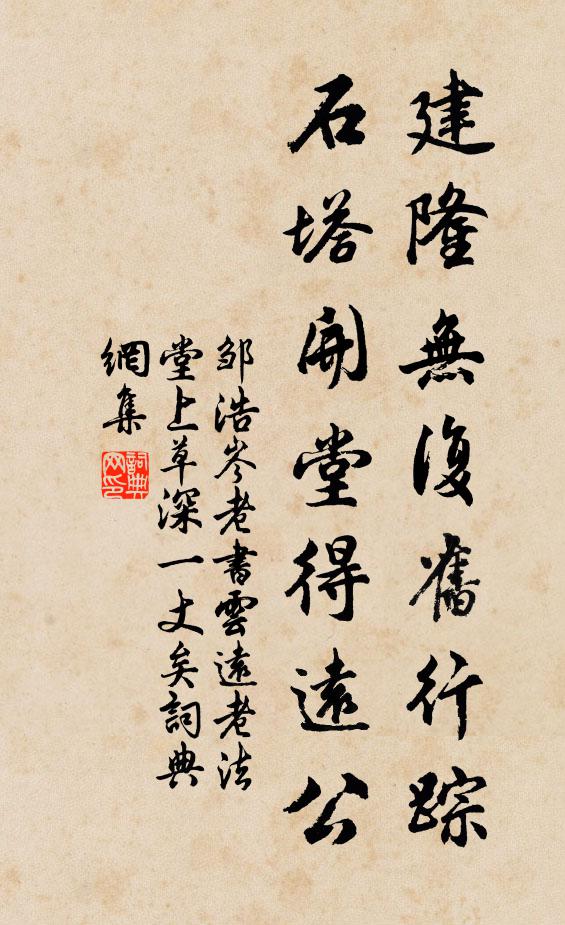 建隆無復舊行踪
石塔開堂得遠公
邹浩岑老書雲遠老法
堂上草深一丈矣詞典
網集
詞典
网印